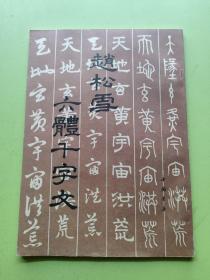 天地玄黃宇宙洪荒
天地玄黃宇宙洪荒
天地玄黃宇宙洪荒
趙松雪
天地玄黃宇宙洪荒
六體千字文
天地玄黃宇宙洪荒
天地玄黃宇宙洪荒